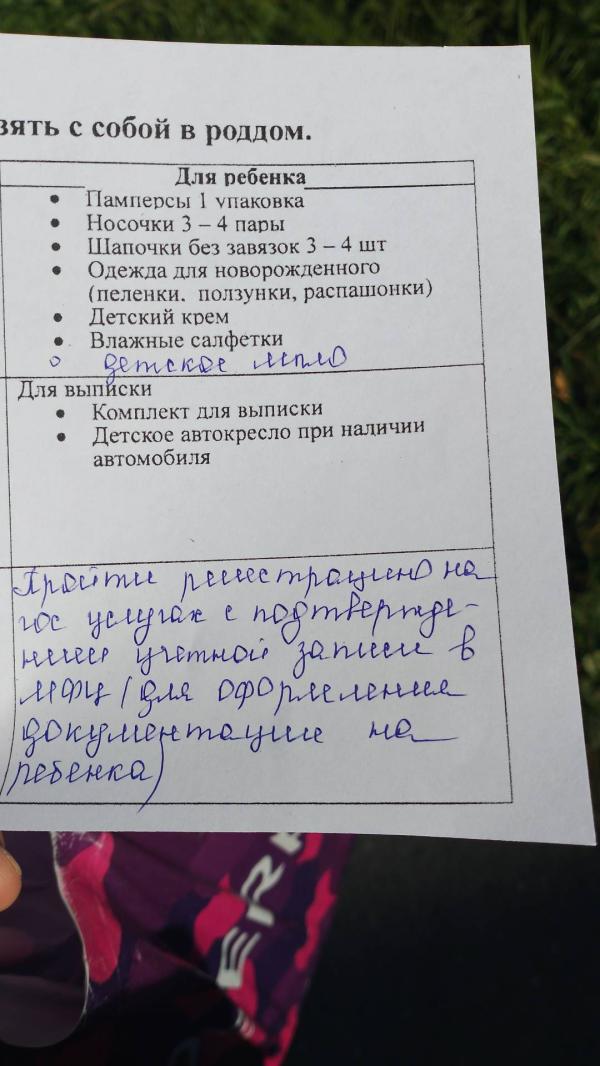 зять с собой в роддом.
Для ребенка
Памперсы 1 упаковка
Носочки 3 – 4 пары
Шапочки без завязок 3 – 4 шт
Одежда для новорожденного
(пеленки, ползунки, распашонки)
Детский крем
Влажные салфетки
детское мыло
Для выписки
Комплект для выписки
Детское автокресло при наличии
автомобиля
Пройти регистрацию на
гос услугах с подтвержде-
нием учетной записи в
МФЦ (для оформления
документации на
ребенка)
ER